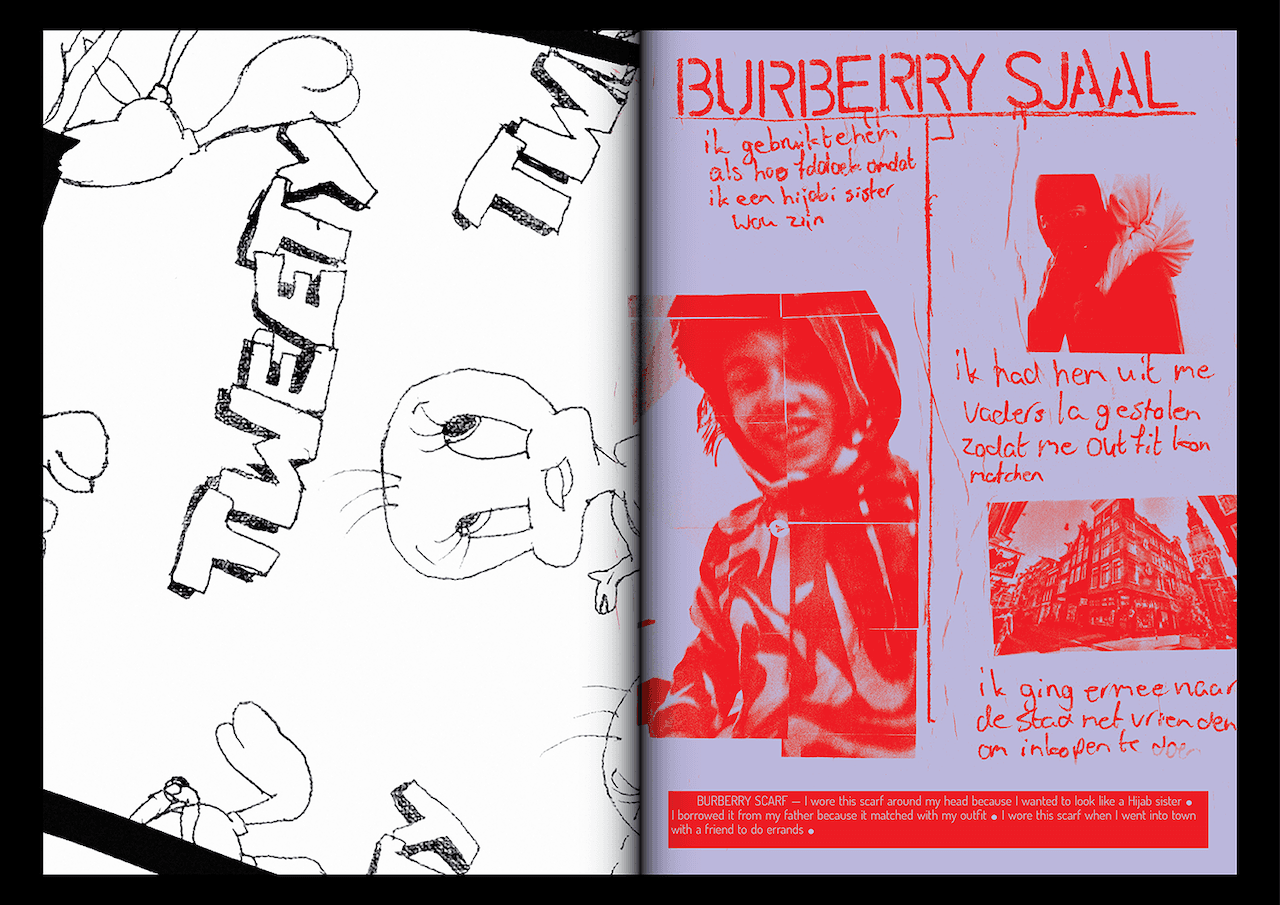 TWEETY
TW
Y
BURBERRY SJAAL
ik gebruikte hem
als hoofddoek omdat
ik een hijabi sister
wou zijn
ik had hem uit me
vaders la gestolen
zodat me outfit kon
matchen
ik ging ermee naar
de stad met vrienden
om inkopen te doen
BURBERRY SCARF — I wore this scarf around my head because I wanted to look like a Hijab sister ●
I borrowed it from my father because it matched with my outfit ● I wore this scarf when I went into town
with a friend to do errands ●